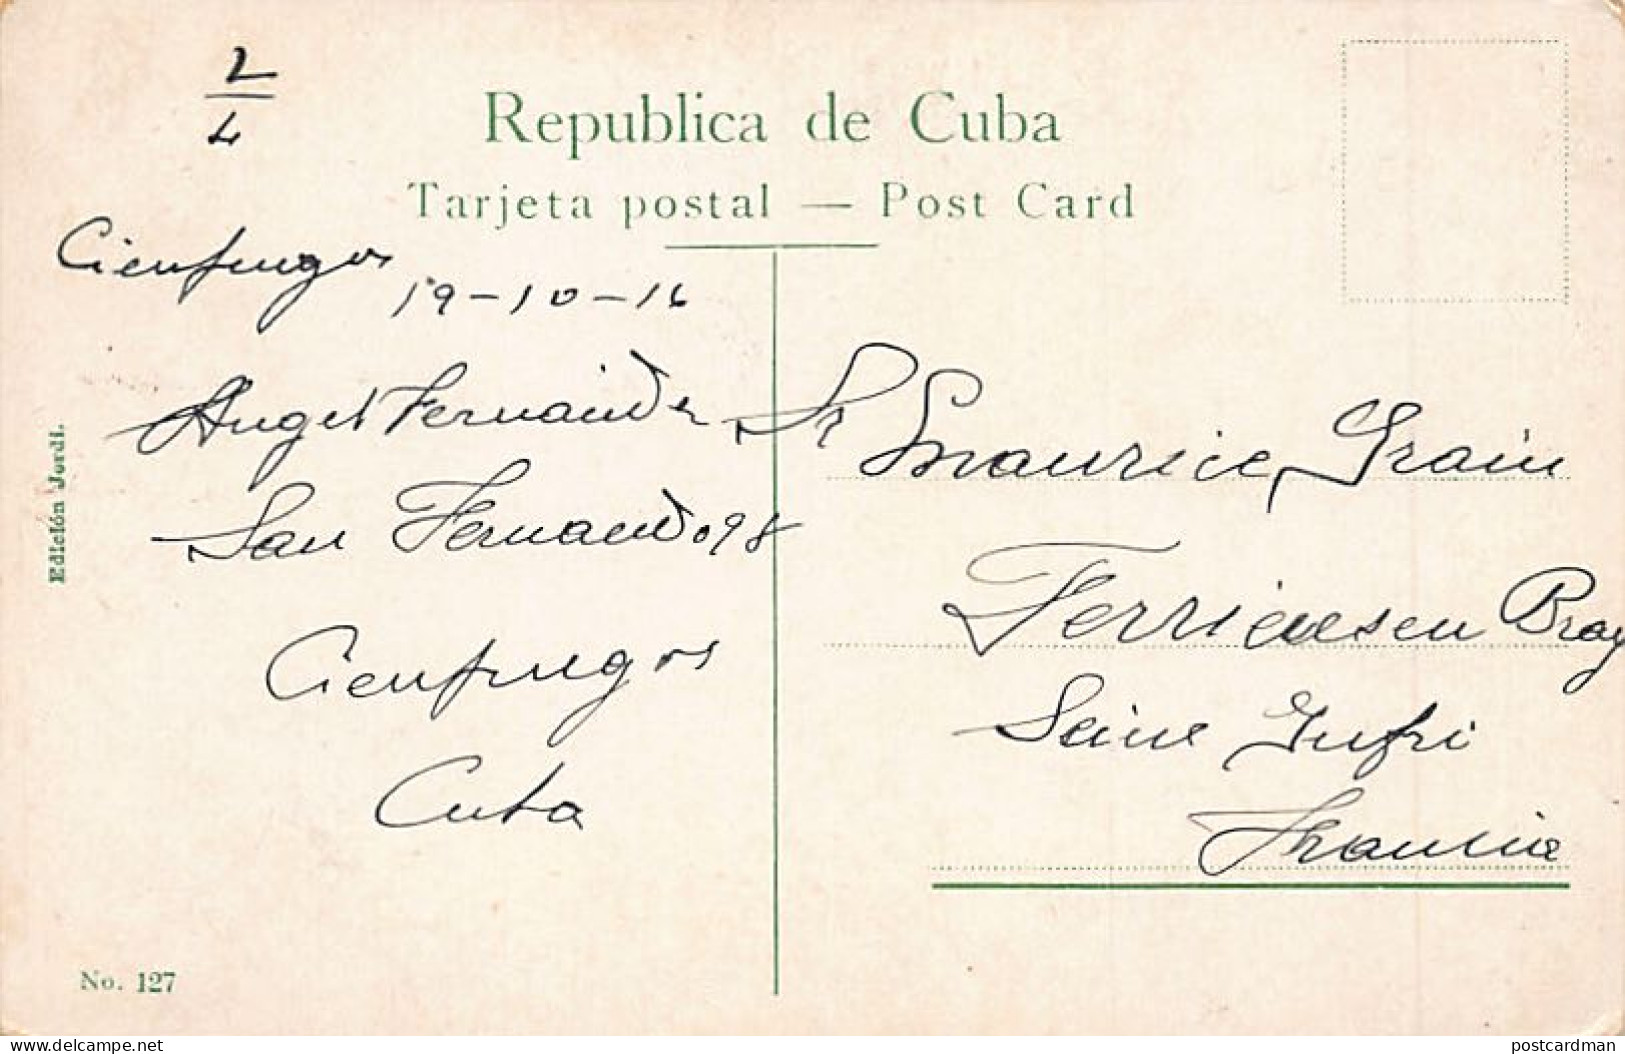 2/4
Republica de Cuba
Tarjeta postal — Post Card
Cienfuegos
19-10-16
Angel Fernandez
San Fernando 98
Cienfuegos
Cuba
Edición Jordi.
No. 127
Sr Maurice Grain
Ferrieres en Bray
Seine Infri
Francia
delcampe.net
postcardman